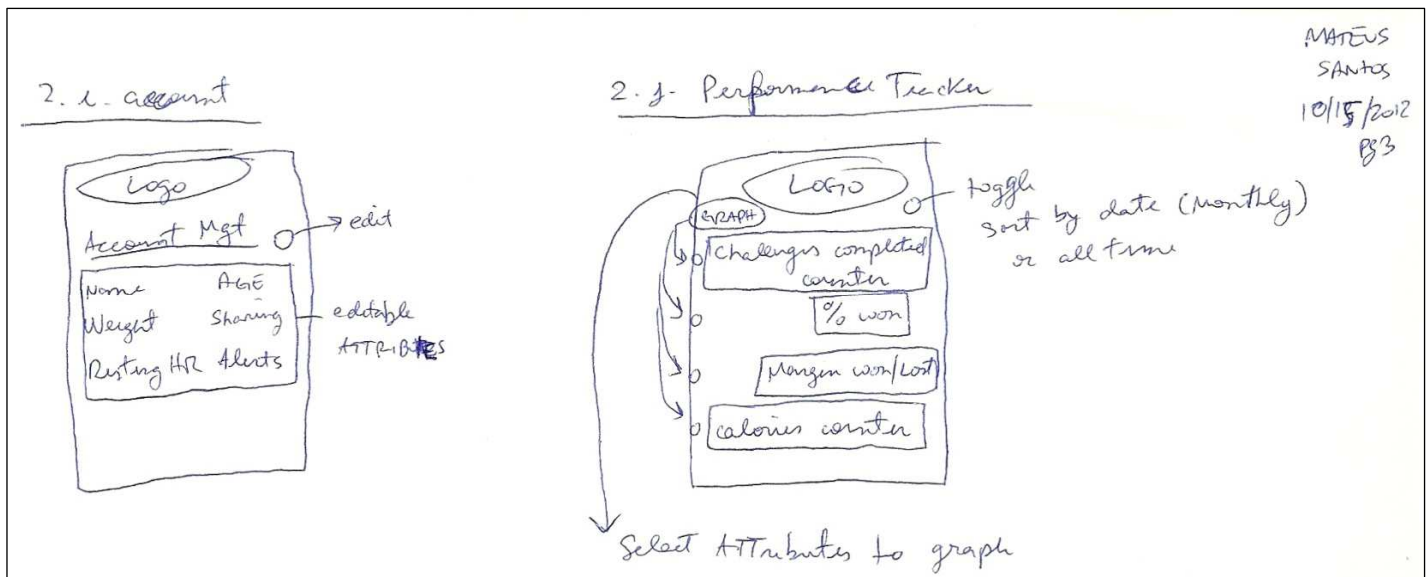 MATEUS
SANTOS
10/15/2012
pg 3
2. i. account
Logo
Account Mgt
edit
Name AGE
Weight Sharing
Resting HR Alerts
editable
ATTRIBUTES
2. j. Performance Tracker
LOGO
GRAPH
toggle
sort by date (Monthly)
or all time
Challenges completed
counter
% won
Margin won/Lost
calories counter
Select ATTributes to graph